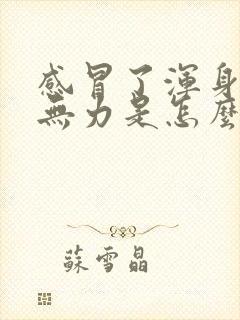 感冒了渾身
無力是怎麼
蘇雪晶